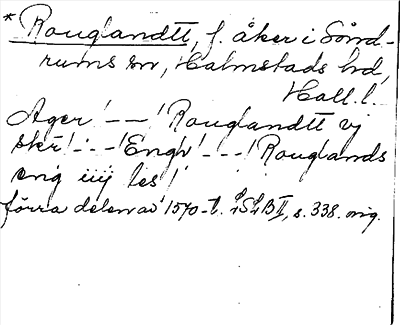 * Rouglandtt, f. åker i Sönd-
rums sn, Halmstads hd,
Hall. l.
Ager! - - ! Rouglandtt vj
skr! - - - ! Engh! - - - ! Rouglands
eng iiij les!
förra delen av 1570-t. LSLB II, s. 338. orig.